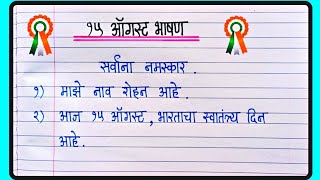 १५ ऑगस्ट भाषण
सर्वांना नमस्कार .
१) माझे नाव रोहन आहे .
२) आज १५ ऑगस्ट , भारताचा स्वातंत्र्य दिन
आहे .